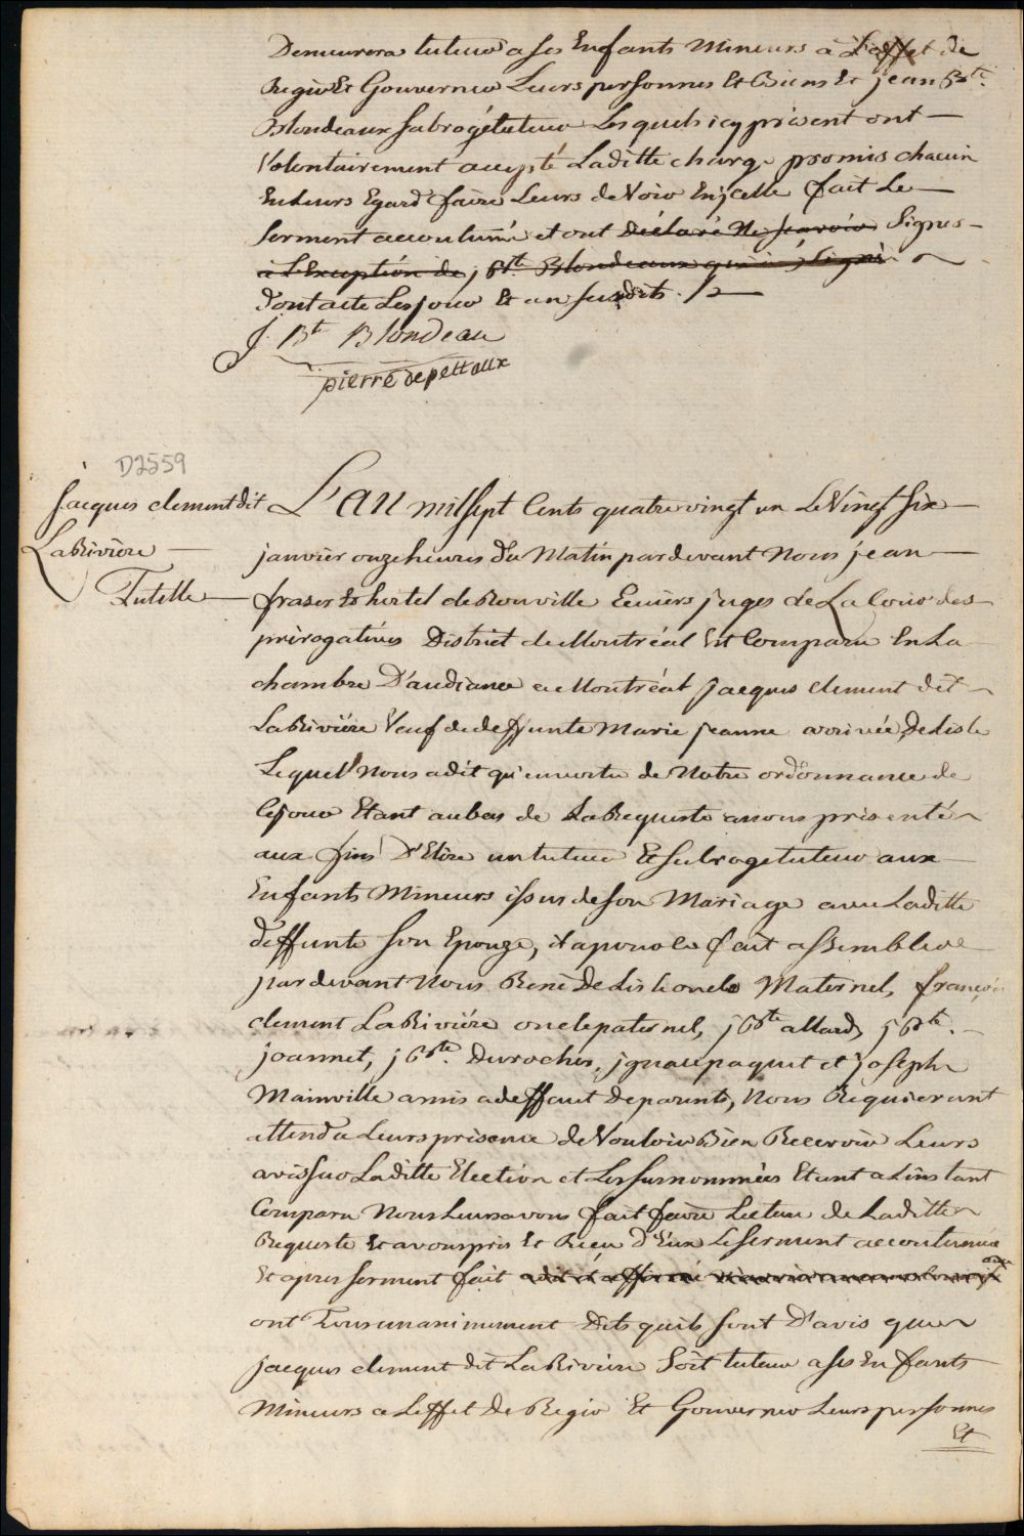 Demeurera tuteur a ses Enfants Mineurs a L'effet de
Regir Et Gouverner Leurs personnes Et Biens Et jean Bte.
Blondeaux subrogétuteur Lesquels icy présent ont —
Volontairement accepté Laditte charge promis chacun
En Leurs Egard faire Leurs deVoir Enjcelle fait Le —
Serment accoutumé et ont déclaré Ne scavoir Signer —
a L'Exception de j Bte. Blondeaux qui a signé
Dont acte Les jour Et an susdits ./.
J. Bt Blondeau
pierre depettaux
D2559
Jacques clement dit
LaRivière —
Tutelle —
L'an mil sept Cents quatre vingt un Le Vingt six —
janvier onze heures Du Matin pardevant Nous jean —
fraser Et hertel de Rouville Ecuiers juges de La Cour des
prérogatives District de Montréal Est Comparu En La
chambre D'audiance a Montréal Jacques clement dit
LaRivière Veuf de deffunte Marie Jeanne Delisle
Lequel Nous a dit qu'en vertu de Notre ordonnance de
Cejour Etant au bas de La Requeste a nous présenté
aux fins D'Elire un tuteur Et Subrogetuteur aux
Enfants Mineurs issus de son Mariage avec Laditte
deffunte son Epouze, il a pour ce fait assembler
pardevant Nous René Delisle oncle Maternel, françois
clement LaRivière oncle paternel, j Bte allard, j Bte. —
joannet, j Bte. Durocher, jgnace paquet et joseph
Mainville amis a deffaut de parents, Nous Requierant
attendu Leurs présence de Vouloir Bien Recevoir Leurs
avis sur Laditte Election et Les surnommées Etant a Linstant
Comparu Nous Leurs avons fait faire Lecture de Laditte
Requeste Et avons pris Et Recu D'Eux Le serment accoutumé
Et apres serment fait
ont Tous unanimement Dits quils sont D'avis que
jacques clement dit LaRivière Soit tuteur a ses Enfants
Mineurs a Leffet De Regir Et Gouverner Leurs personnes
Et